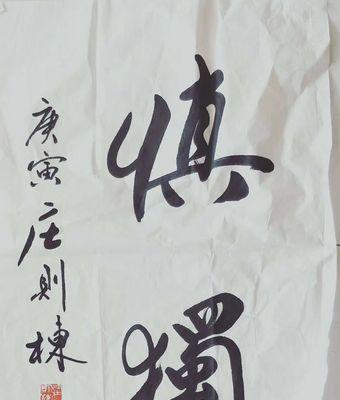 慎獨
庚寅 庄則棟